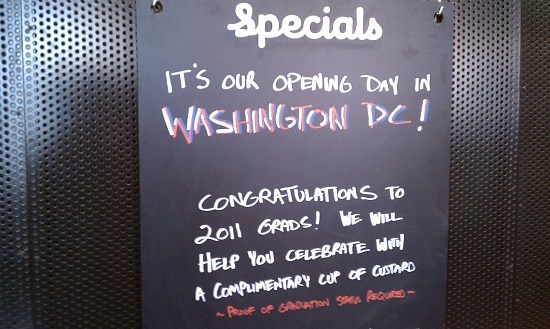 Specials
IT'S OUR OPENING DAY IN
WASHINGTON DC!
CONGRATULATIONS TO
2011 GRADS! WE WILL
HELP YOU CELEBRATE WITH
A COMPLIMENTARY CUP OF CUSTARD
~ PROOF OF GRADUATION REQUIRED ~